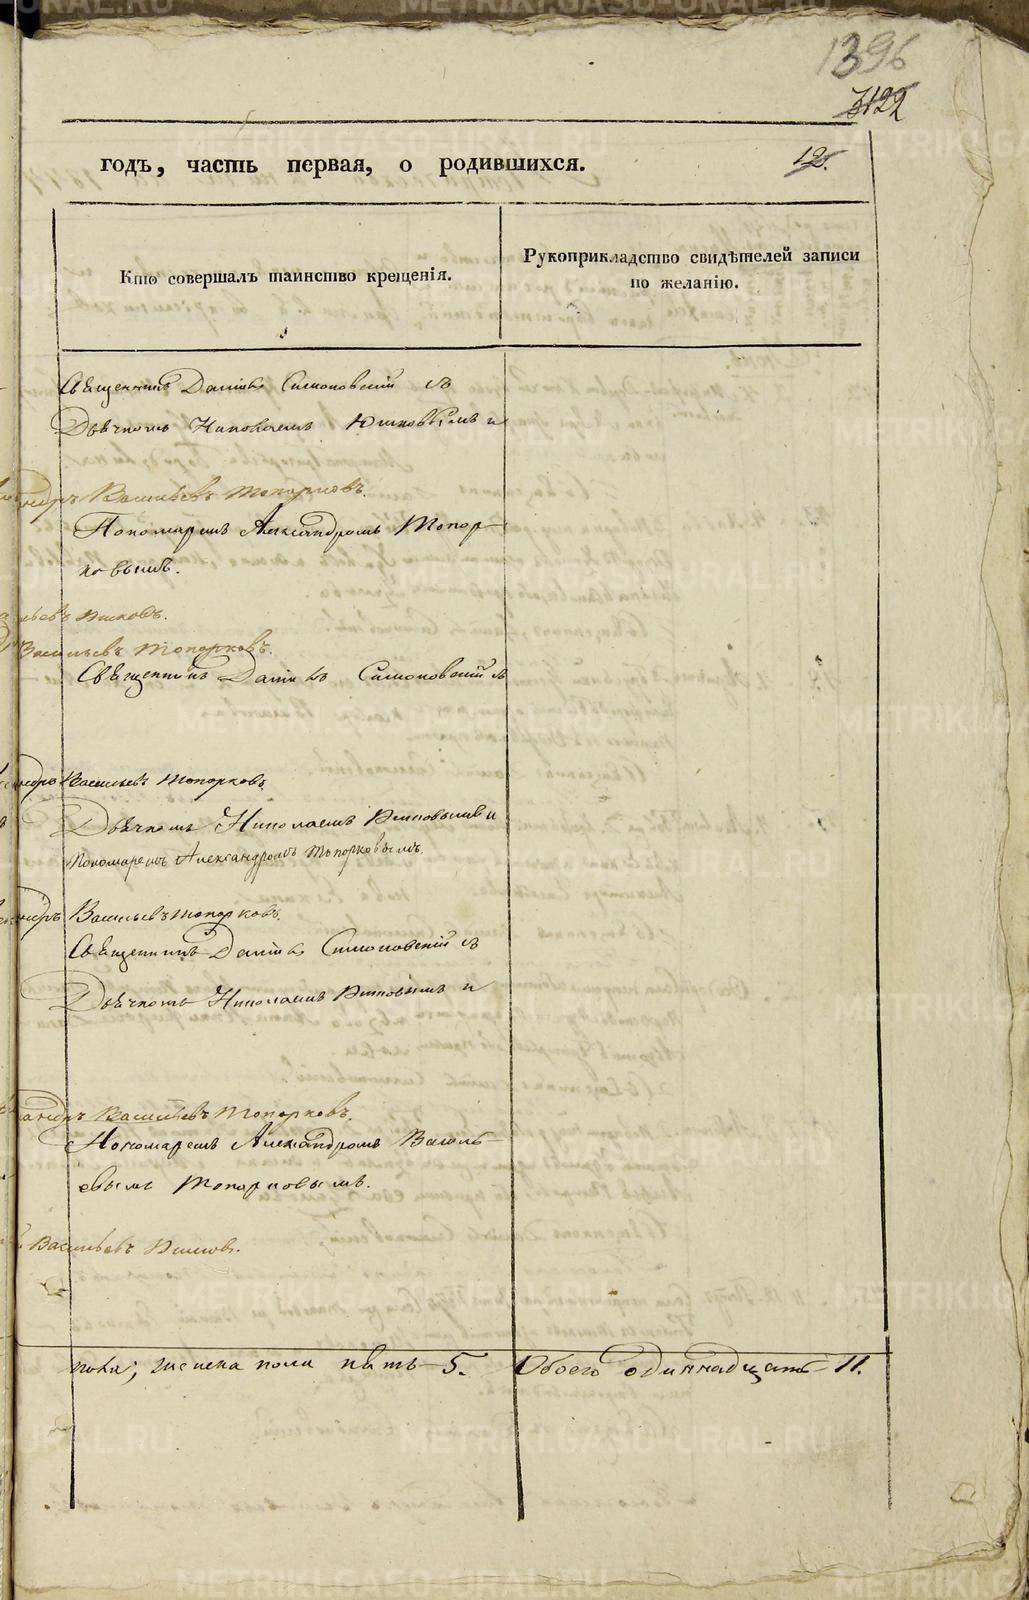 1396
3122
годъ, часть первая, о родившихся.
12.
Кто совершалъ таинство крещенія.
Рукоприкладство свидѣтелей записи
по желанію.
Священникъ Даніилъ Симоновскій съ
Дьячкомъ Николаемъ и
Васильевъ Топорковъ.
Пономаремъ Александромъ Топор-
ковымъ.
Васильевъ Топорковъ.
Священникъ Даніилъ Симоновскій съ
Васильевъ Топорковъ.
Дьячкомъ Николаемъ и
Пономаремъ Александромъ Топорковымъ.
Васильевъ Топорковъ.
Священникъ Даніилъ Симоновскій съ
Дьячкомъ Николаемъ и
Васильевъ Топорковъ.
Пономаремъ Александромъ Василь-
евымъ Топорковымъ.
Васильевъ
пола; женска пола пять 5. Обоего одиннадцать 11.
METRIKI.GASO-URAL.RU